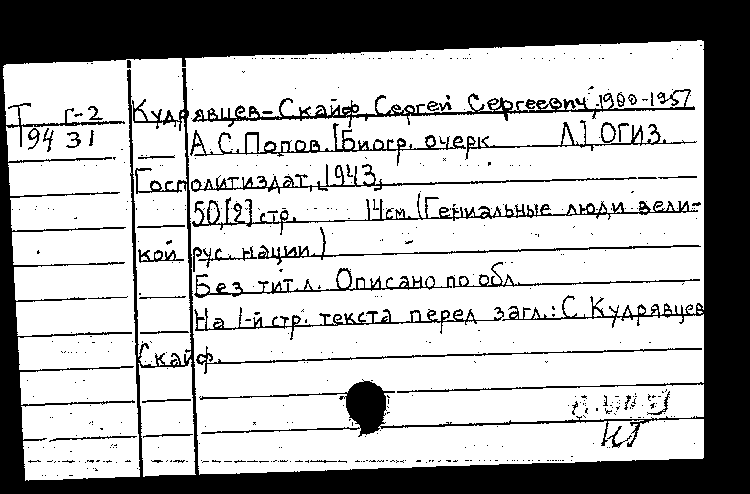 Т Г-2
94 31
Кудрявцев-Скайф, Сергей Сергеевич, 1900-1957
А.С. Попов. [Биогр. очерк. Л.], ОГИЗ.
Госполитиздат, 1943,
50, [2] стр. 14см. (Гениальные люди вели-
кой рус. нации.)
Без тит. л. Описано по обл.
На 1-й стр. текста перед загл.: С. Кудрявцев
Скайф.